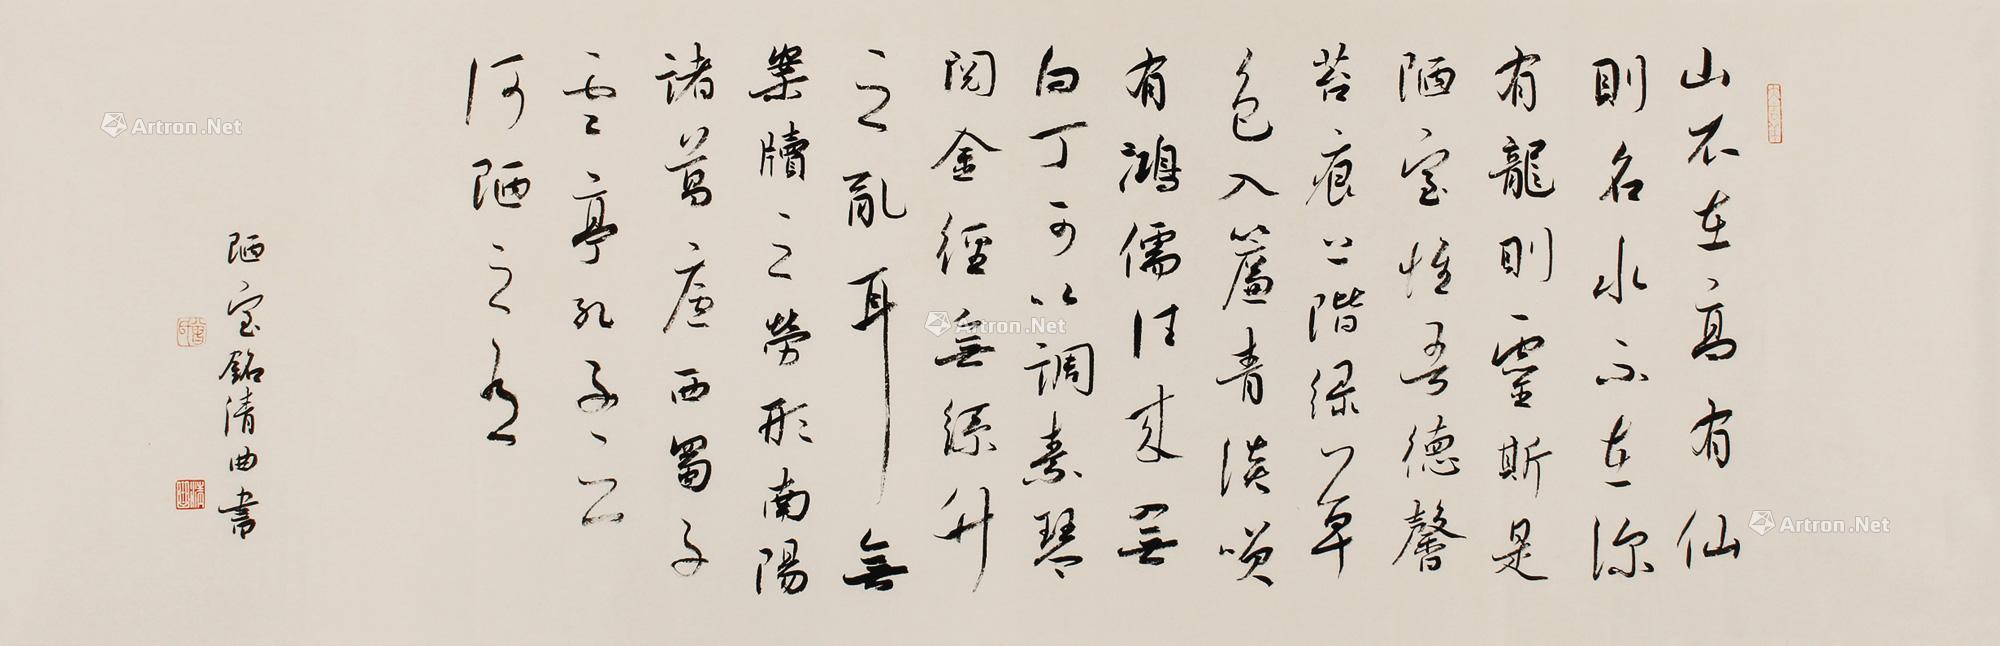 山不在高有仙
則名水不在深
有龍則靈斯是
陋室惟吾德馨
苔痕上階綠草
色入簾青談咲
有鴻儒往來無
白丁可以調素琴
閱金經無絲竹
之亂耳無
案牘之勞形南陽
諸葛廬西蜀子
雲亭孔子云
何陋之有
陋室銘清曲書
Artron.Net
Artron.Net
Artron.Net